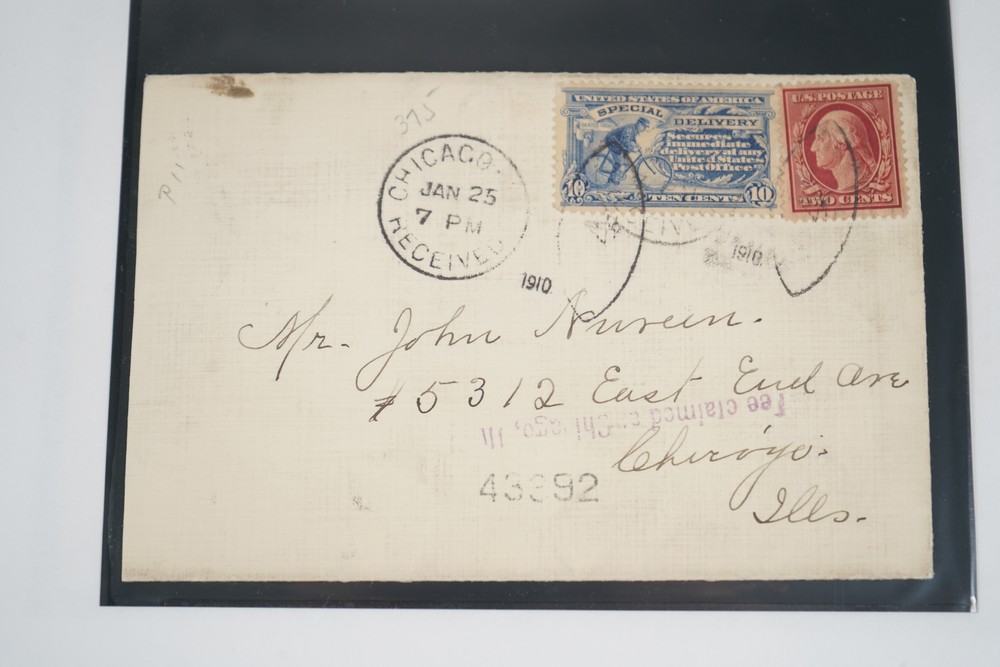 375
UNITED STATES OF AMERICA
SPECIAL DELIVERY
Secures
immediate
delivery at any
United States
Post Office
10 TEN CENTS 10
U.S. POSTAGE
TWO CENTS
CHICAGO.
JAN 25
7 PM
RECEIVED
1910
1910
Mr. John Nuveen.
#5312 East End Ave
Fee claimed at Chicago, Ill
Chicago.
Ills.
43992